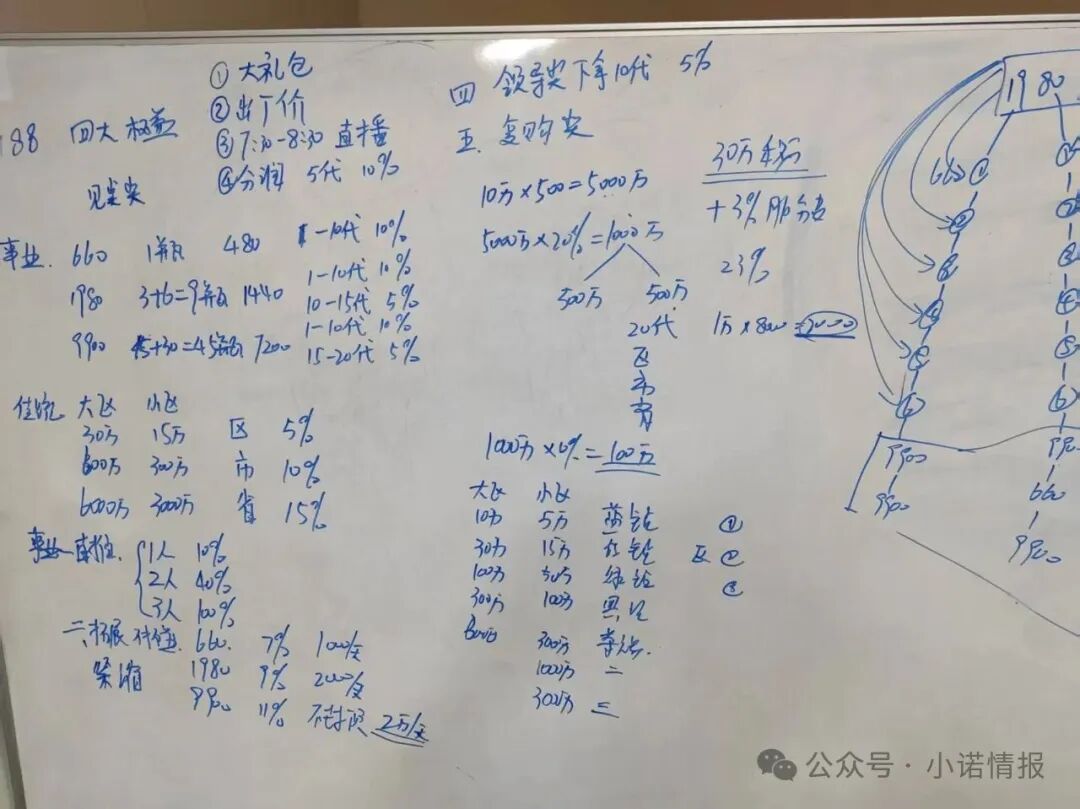 ① 大礼包
② 出厂价
188 四大权益 ③ 7:30-8:30 直播
④ 分润 5代 10%
见尖奖
事业 660 1瓶 480 1-10代 10%
1980 3+6=9瓶 1440 1-10代 10%
10-15代 5%
9900 15+30=45瓶 7200 1-10代 10%
15-20代 5%
大区 小区
30万 15万 区 5%
600万 300万 市 10%
6000万 3000万 省 15%
事业 直推 1人 10%
2人 40%
3人 100%
二、拓展 660 7% 1000/天
紧缩 1980 9% 2000/天
9900 11% 不封顶 2万/天
四 领导奖 下拿10代 5%
五. 复购奖
10万×500=5000万
5000万×20%=1000万
500万 500万
20代
区
市
省
30万
+3%
23%
1万×800=
1000万×10%=100万
大区 小区
10万 5万 蓝钻 ①
30万 15万 红钻 区 ②
100万 50万 绿钻 ③
300万 100万
600万 300万
1000万 二
3000万 三
1980
660 ① ①
② ②
③ ③
④ ④
⑤ ⑤
⑥ ⑥
9900 9900
9900 660
9900
公众号 · 小诺情报